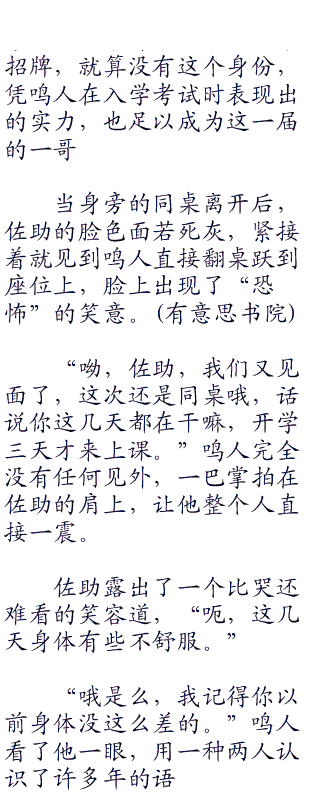 招牌，就算没有这个身份，
凭鸣人在入学考试时表现出
的实力，也足以成为这一届
的一哥
当身旁的同桌离开后，
佐助的脸色面若死灰，紧接
着就见到鸣人直接翻桌跃到
座位上，脸上出现了“恐
怖”的笑意。(有意思书院)
“呦，佐助，我们又见
面了，这次还是同桌哦，话
说你这几天都在干嘛，开学
三天才来上课。”鸣人完全
没有任何见外，一巴掌拍在
佐助的肩上，让他整个人直
接一震。
佐助露出了一个比哭还
难看的笑容道，“呃，这几
天身体有些不舒服。”
“哦是么，我记得你以
前身体没这么差的。”鸣人
看了他一眼，用一种两人认
识了许多年的语